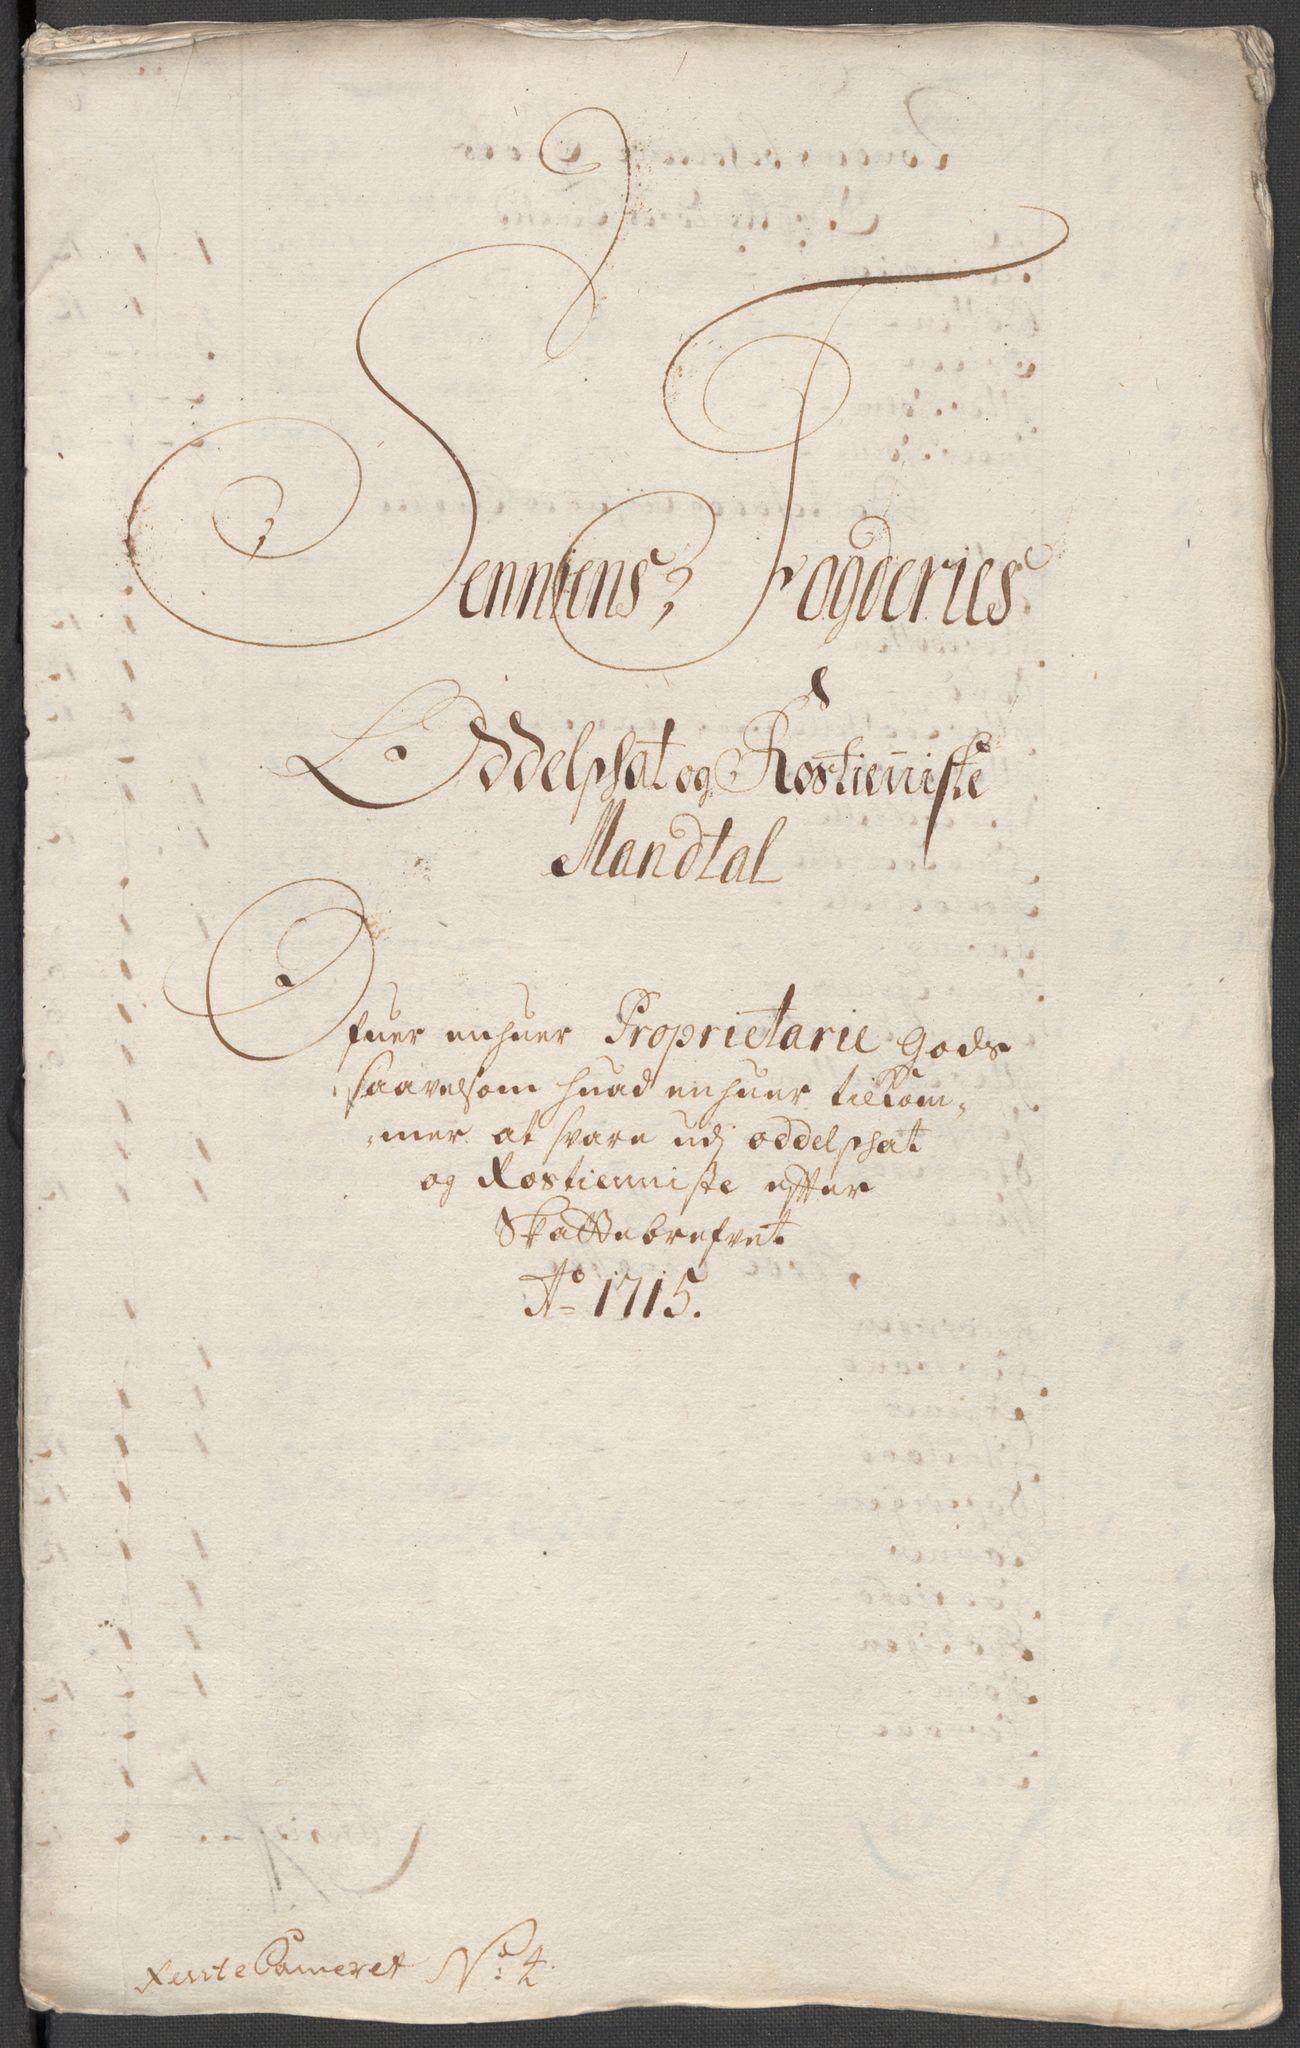 Senniens Fogderies
Oddelshat og Rostienniste
Mandtal
Ofuer enhuer Proprietarie Gods
saavelsom huad enhuer tilkom-
-mer at svare udj oddelshat
og Rostienniste efter
Skattebrefvet
Ao 1715.
RenteCameret No: 4